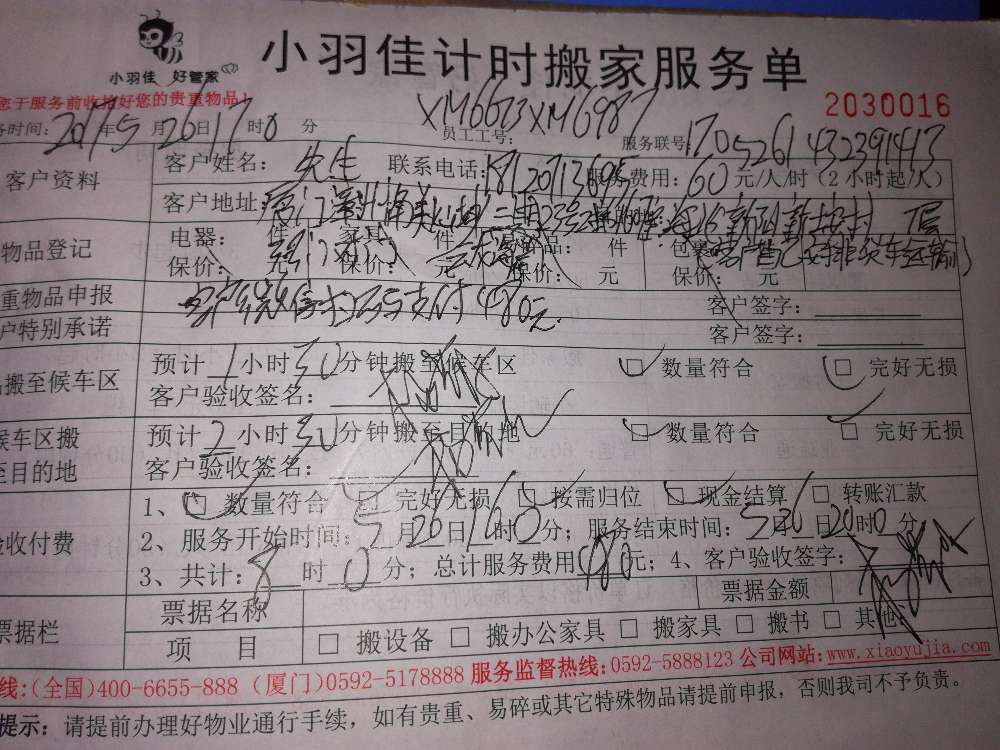 小羽佳 好管家
小羽佳计时搬家服务单
您于服务前收拾好您的贵重物品！
2030016
务时间：2017年5月26日17时0分 员工工号：XM6673XM6987 服务联号：
客户资料 客户姓名：先生 联系电话： 服务费用：60元/人/时（2小时起/人）
客户地址：
物品登记 电器： 件 家具 件 品： 件 包裹
保价： 元 保价： 元 保价： 元 保价： 元
重物品申报 客户微信扫码支付480元. 客户签字：
户特别承诺 客户签字：
搬至候车区 预计1小时30分钟搬至候车区 □ 数量符合 □ 完好无损
客户验收签名：
候车区搬至目的地 预计2小时30分钟搬至目的地 □ 数量符合 □ 完好无损
客户验收签名：
验收付费 1、□ 数量符合 □ 完好无损 □ 按需归位 □ 现金结算 □ 转账汇款
2、服务开始时间：5月26日16时0分；服务结束时间：5月26日20时0分
3、共计：8时0分；总计服务费用480元；4、客户验收签字：
票据栏 票据名称 票据金额
项 目 □ 搬设备 □ 搬办公家具 □ 搬家具 □ 搬书 □ 其他：
线：(全国)400-6655-888 (厦门)0592-5178888 服务监督热线：0592-5888123 公司网站：www.xiaoyujia.com
提示：请提前办理好物业通行手续，如有贵重、易碎或其它特殊物品请提前申报，否则我司不予负责。